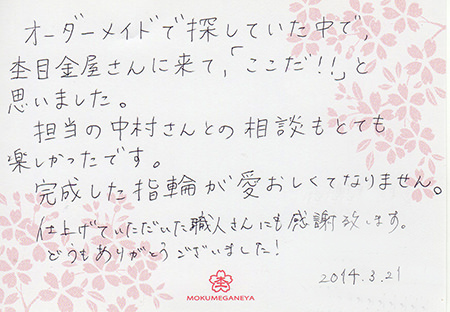 オーダーメイドで探していた中で、
杢目金屋さんに来て、「ここだ!!」と
思いました。
担当の中村さんとの相談もとても
楽しかったです。
完成した指輪が愛おしくてなりません。
仕上げていただいた職人さんにも感謝致します。
どうもありがとうございました!
2014.3.21
杢
MOKUMEGANEYA